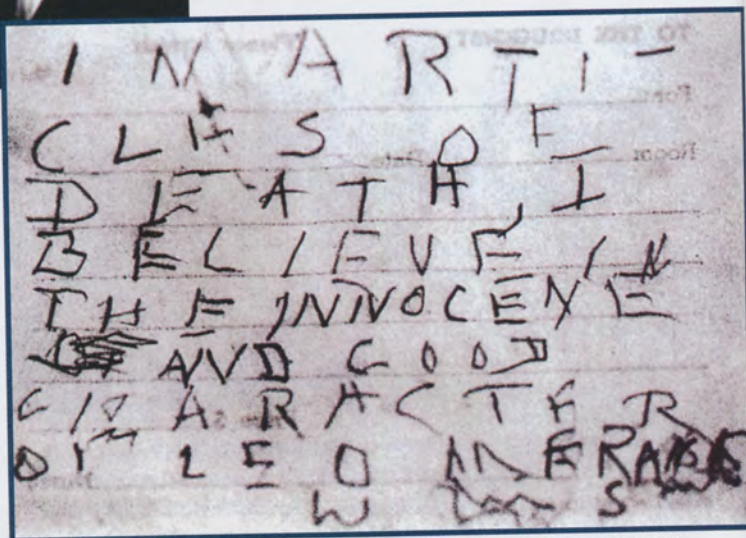 IN ARTI-
CLES OF
DEATH, I
BELIEVE IN
THE INNOCENCE
AND GOOD
CHARACTER
OF LEO M FRANK
W M S